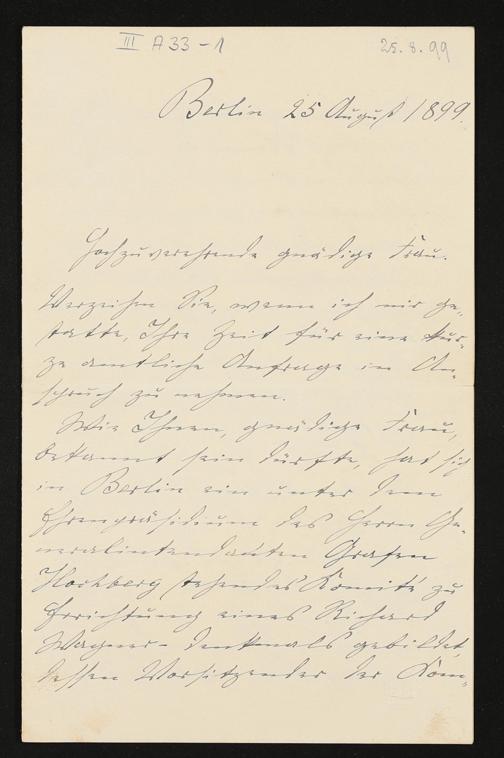 III A 33 - 1
25. 8. 99
Berlin 25 August 1899.
Hochzuverehrende gnädige Frau.
Verzeihen Sie, wenn ich mir ge-
statte, Ihre Zeit für eine kur-
ze amtliche Anfrage in An-
spruch zu nehmen.
Wie Ihnen, gnädige Frau,
bekannt sein dürfte, hat sich
in Berlin ein unter dem
Ehrenpräsidium des Herrn Ge-
neralintendanten Grafen
Hochberg stehendes Komité zu
Errichtung eines Richard
Wagner-Denkmals gebildet,
dessen Vorsitzender der Kom-